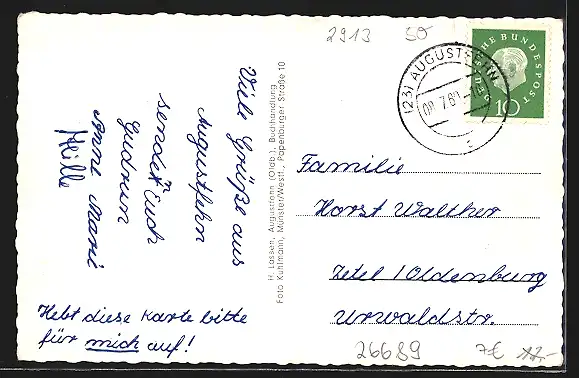 2913 50
Viele Grüße aus
Augustfehn
senden Euch
Gudrun
Anne Marie
Hille
Hebt diese Karte bitte
für mich auf!
H. Lassen, Augustfehn (Oldb.), Buchhandlung
Foto Kuhlmann, Münster/Westf., Papenburger Straße 10
(23) AUGUSTFEHN
DEUTSCHE BUNDESPOST
10
Familie
Horst Walther
Zetel /Oldenburg
Urwaldstr.
26689 7€ 12.-